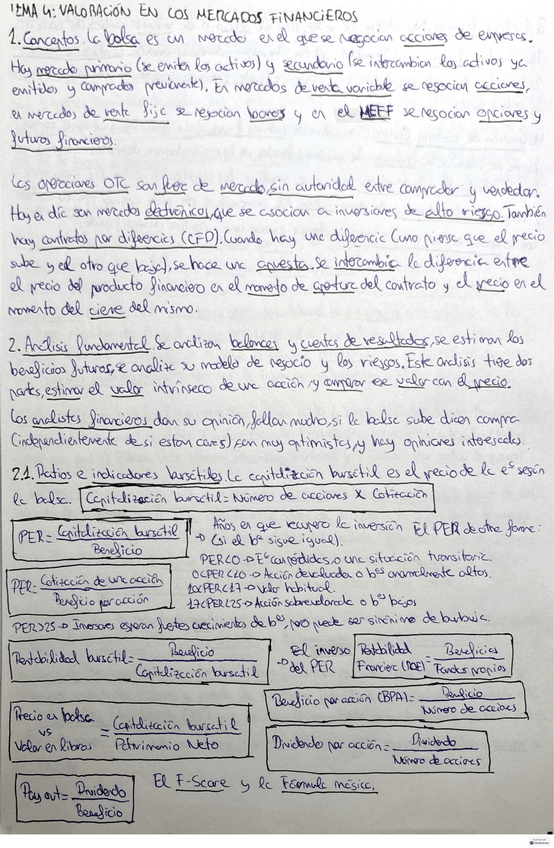 TEMA 4: VALORACIÓN EN LOS MERCADOS FINANCIEROS
1. Conceptos. La bolsa es un mercado en el que se negocian acciones de empresas.
Hay mercado primario (se emiten los activos) y secundario (se intercambian los activos ya
emitidos y comprados previamente). En mercados de renta variable se negocian acciones,
en mercados de renta fija se negocian bonos y en el MEFF se negocian opciones y
futuros financieros.
Las operaciones OTC son fuera de mercado, sin autoridad entre comprador y vendedor.
Hoy en día son mercados electrónicos, que se asocian a inversiones de alto riesgo. También
hay contratos por diferencias (CFD). Cuando hay una diferencia (uno piensa que el precio
sube y el otro que baja), se hace una apuesta. Se intercambia la diferencia entre
el precio del producto financiero en el momento de apertura del contrato y el precio en el
momento del cierre del mismo.
2. Análisis fundamental Se analizan balances y cuentas de resultados, se estiman los
beneficios futuros, se analiza su modelo de negocio y los riesgos. Este análisis tiene dos
partes, estimar el valor intrínseco de una acción y comparar ese valor con el precio.
Los analistas financieros dan su opinión, fallan mucho, si la bolsa sube dicen compra
(independientemente de si están caros), son muy optimistas, y hay opiniones interesadas.
2.1. Ratios e indicadores bursátiles. La capitalización bursátil es el precio de la eª según
la bolsa. Capitalización bursátil = Número de acciones X Cotización
PER = Capitalización bursátil / Beneficio → Años en que recupero la inversión (si el bº sigue igual). El PER de otra forma:
PER = Cotización de una acción / Beneficio por acción
PER<0 → Eª con pérdidas, o una situación transitoria.
0<PER<10 → Acción devaluada o bºs anormalmente altos.
10<PER<17 → Valor habitual.
17<PER<25 → Acción sobrevalorada o bºs bajos
PER>25 → Inversores esperan fuertes crecimientos de bºs, pero puede ser sinónimo de burbuja.
Rentabilidad bursátil = Beneficio / Capitalización bursátil → El inverso del PER
Rentabilidad Financiera (ROE) = Beneficios / Fondos propios
Beneficio por acción (BPA) = Beneficio / Número de acciones
Precio en bolsa vs Valor en libros = Capitalización bursátil / Patrimonio Neto
Dividendo por acción = Dividendo / Número de acciones
Pay out = Dividendo / Beneficio
El F-Score y la Fórmula mágica.